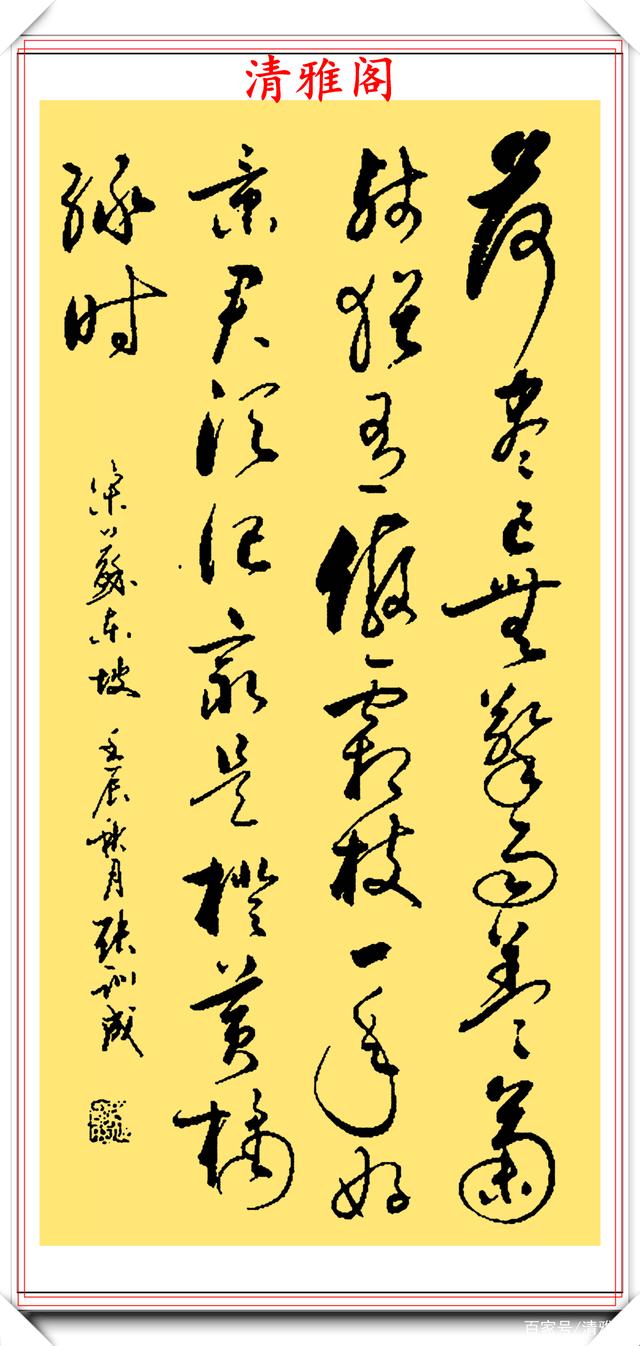 清雅阁
荷尽已無擎雨盖菊
残猶有傲霜枝一年好
景君須记最是橙黄橘
绿时
蘇东坡 壬辰秋月 张训成
百家号/清雅